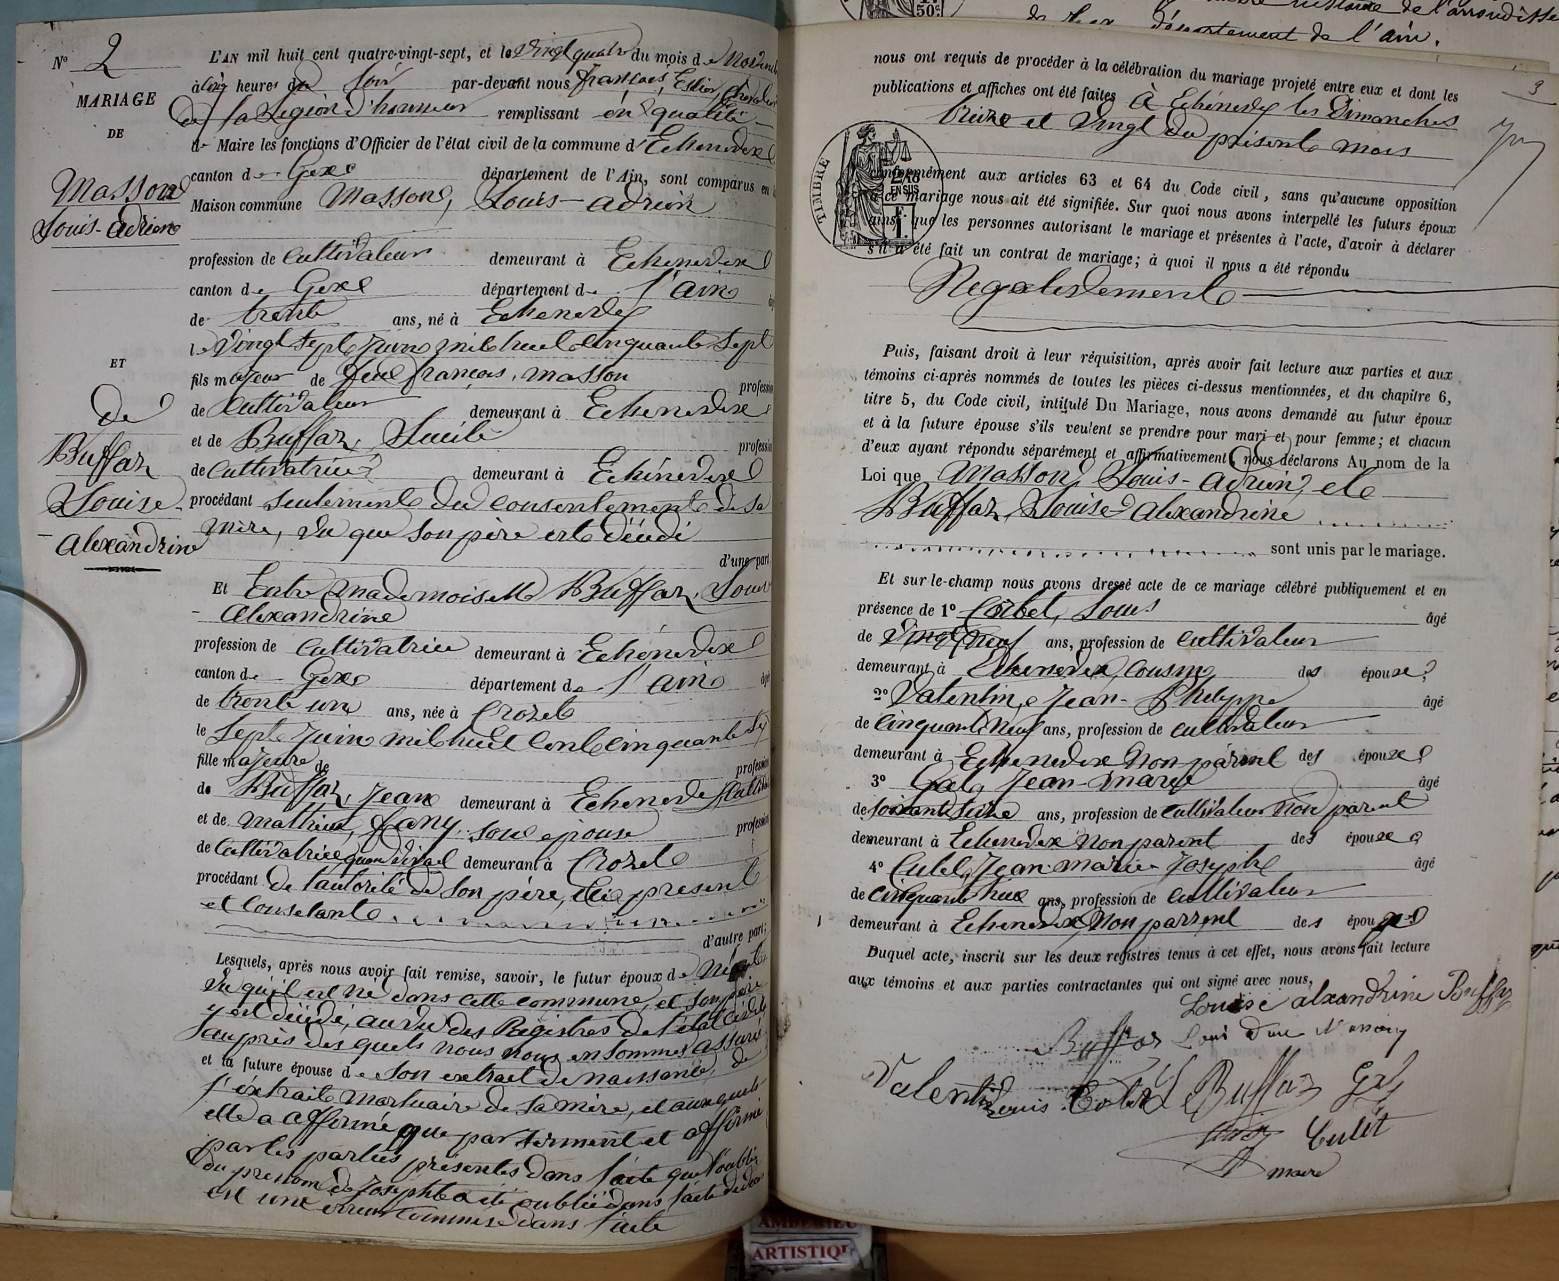 N° 2
MARIAGE
DE
Masson
Louis-Adrien
ET
de
Buffaz
Louise
Alexandrine
L'AN mil huit cent quatre-vingt-sept, et le vingt quatre du mois de Novembre
à cinq heures du soir par-devant nous François, Chevalier
de la Légion d'honneur remplissant en qualité
de Maire les fonctions d'Officier de l'état civil de la commune d'Echenevex
canton de Gex département de l'Ain, sont comparus en la
Maison commune Masson, Louis-Adrien
profession de cultivateur demeurant à Echenevex
canton de Gex département de l'ain
de trente ans, né à Echenevex
le vingt sept juin mil huit cinquante sept
fils majeur de feu françois, masson profession
de cultivateur demeurant à Echenevex
et de Buffaz, Lucile profession
de cultivatrice demeurant à Echénevex
procédant seulement du consentement de sa
mère, vu que son père est décédé
d'une part
Et Entre mademoiselle Buffaz, Louise
Alexandrine
profession de cultivatrice demeurant à Echénevex
canton de Gex département de l'ain âgée
de trente un ans, née à Crozet
le sept juin mil huit cent cinquante six
fille majeure de profession
de Buffaz, Jean demeurant à Echenevex
et de mathieu, fany, son épouse profession
de cultivatrice quand vivait demeurant à Crozet
procédant de l'autorité de son père, ici présent
et consetante
d'autre part;
Lesquels, après nous avoir fait remise, savoir, le futur époux de
vu qu'il est né dans cette commune, et son père
y est décédé, au vu des Registres de l'état civil
auprès des quels nous nous en sommes assuré
et la future épouse de son extrait de naissance, de
l'extrait mortuaire de sa mère, et auxquels
elle a affirmé que par serment et affirmé
par les parties présentes dans l'acte que l'oubli
du prénom de Josephte a été oublié dans l'acte
est une erreur commise dans l'acte
3
nous ont requis de procéder à la célébration du mariage projeté entre eux et dont les
publications et affiches ont été faites à Echénevex les Dimanches
treize et vingt du présent mois
TIMBRE
conformément aux articles 63 et 64 du Code civil, sans qu'aucune opposition
à ce mariage nous ait été signifiée. Sur quoi nous avons interpellé les futurs époux
ainsi que les personnes autorisant le mariage et présentes à l'acte, d'avoir à déclarer
s'il a été fait un contrat de mariage; à quoi il nous a été répondu
Negativement
Puis, faisant droit à leur réquisition, après avoir fait lecture aux parties et aux
témoins ci-après nommés de toutes les pièces ci-dessus mentionnées, et du chapitre 6,
titre 5, du Code civil, intitulé Du Mariage, nous avons demandé au futur époux
et à la future épouse s'ils veulent se prendre pour mari et pour femme; et chacun
d'eux ayant répondu séparément et affirmativement, nous déclarons Au nom de la
Loi que Masson, Louis-Adrien, et
Buffaz, Louise Alexandrine
sont unis par le mariage.
Et sur-le-champ nous avons dressé acte de ce mariage célébré publiquement et en
présence de 1° Louis âgé
de vingt neuf ans, profession de cultivateur
demeurant à Echenevex, cousin des épouse
2° Valentin, Jean-Philippe âgé
de cinquante neuf ans, profession de cultivateur
demeurant à Echenevex non parent des épouse
3° Jean-marie âgé
de soixante ans, profession de cultivateur non parent
demeurant à Echenevex non parent des épouse
4° Jean-marie Joseph âgé
de cinquante ans, profession de cultivateur
demeurant à Echenevex, non parent des époux
Duquel acte, inscrit sur les deux registres tenus à cet effet, nous avons fait lecture
aux témoins et aux parties contractantes qui ont signé avec nous,
Louise alxandrine Buffaz
Buffaz
Valentin Louis Buffaz
maire
AMBERIEU
ARTISTIQUE
département de l'ain.